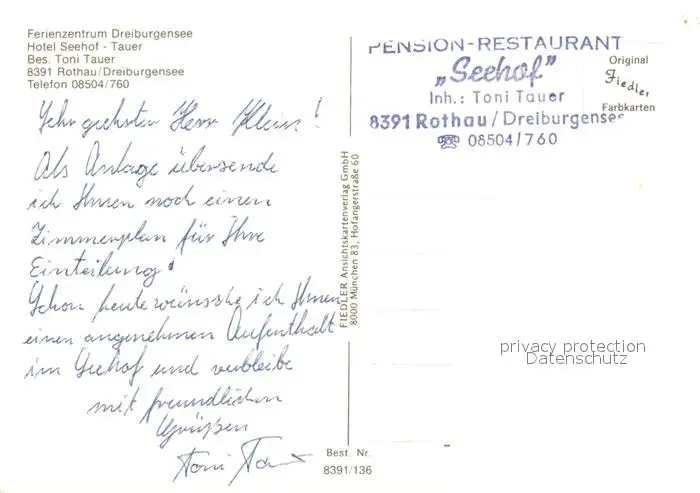 Ferienzentrum Dreiburgensee
Hotel Seehof - Tauer
Bes. Toni Tauer
8391 Rothau/Dreiburgensee
Telefon 08504/760
Sehr geehrter Herr Klein!
Als Anlage übersende
ich Ihnen noch einen
Zimmerplan für Ihre
Einteilung!
Schon heute wünsche ich Ihnen
einen angenehmen Aufenthalt
im Seehof und verbleibe
mit freundlichen
Grüßen
Toni Tauer
FIEDLER Ansichtskartenverlag GmbH
8000 München 83, Hofangerstraße 60
Best. Nr.
8391/136
PENSION-RESTAURANT
„Seehof”
Inh.: Toni Tauer
8391 Rothau/Dreiburgensee
☎ 08504/760
Original
Fiedler
Farbkarten
privacy protection
Datenschutz